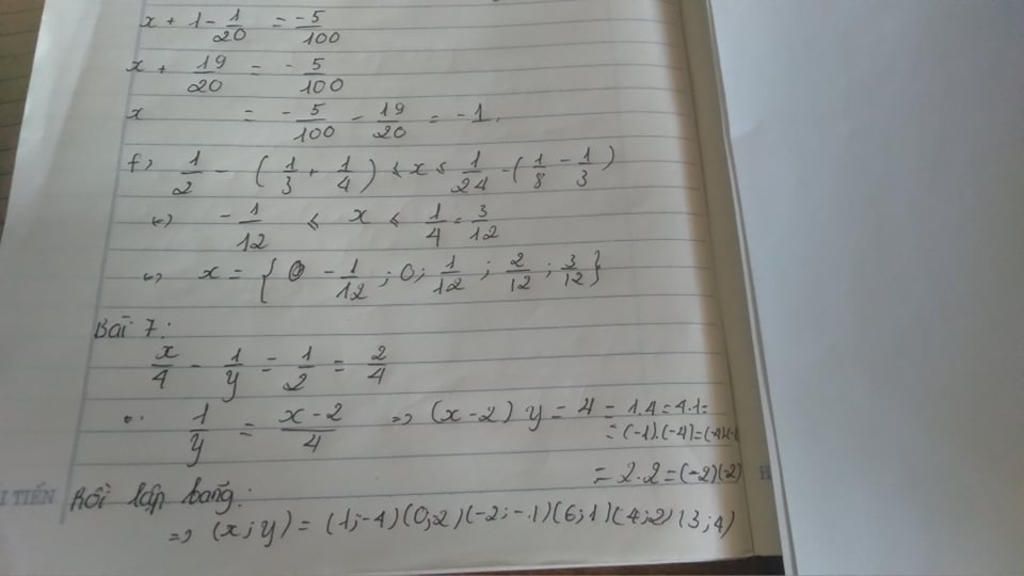 x + 1 - 1/20 = -5/100
x + 19/20 = - 5/100
x = - 5/100 - 19/20 = -1.
f, 1/2 - (1/3 + 1/4) ≤ x ≤ 1/24 - (1/8 - 1/3)
- 1/12 ≤ x ≤ 1/4 = 3/12
x = { - 1/12 ; 0; 1/12 ; 2/12 ; 3/12 }
Bài 7:
x/4 - 1/y = 1/2 = 2/4
1/y = x-2/4 => (x-2) y = 4 = 1.4 = 4.1 =
= (-1).(-4) = (-4)(-1
= 2.2 = (-2)(-2)
I TIẾN Rồi lập bảng:
=> (x; y) = (1; -4) (0; 2) (-2; -1) (6; 1) (4; 2) (3; 4)